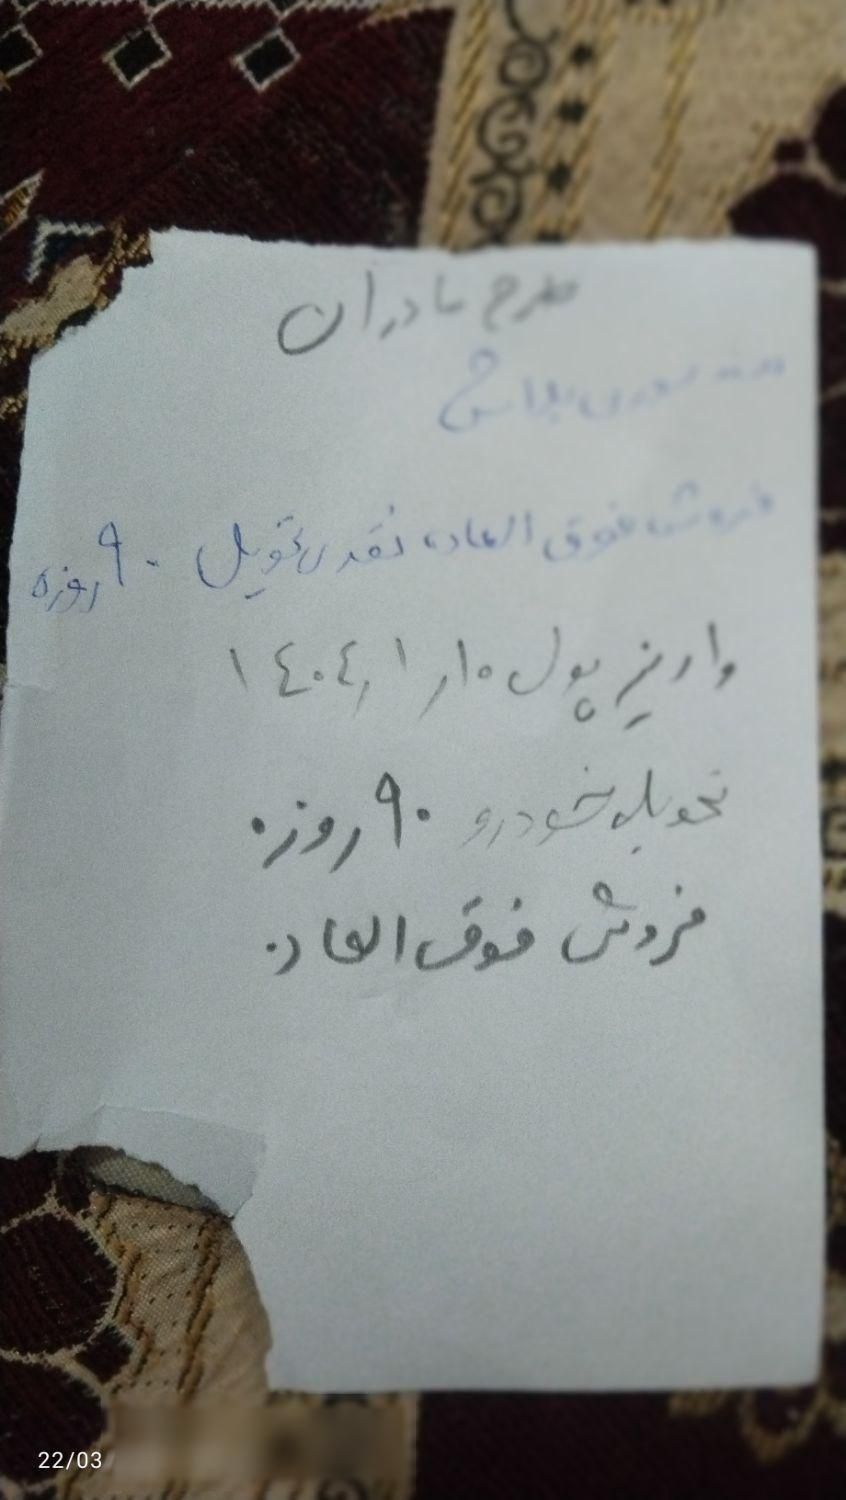 طرح مادران
فروش فوق العاده نقدی تحویل ۹۰ روزه
واریز پول ۱۴۰۴٫۱٫۱۰
تحویل خودرو ۹۰ روزه
فروش فوق العاده
22/03